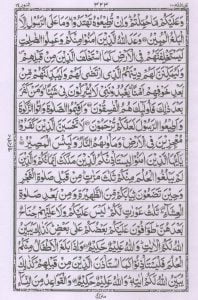 ۳۲۳
وَعَلَيْكُمْ مَّا حُمِّلْتُمْ وَاِنْ تُطِيْعُوْهُ تَهْتَدُوْا وَمَا عَلَى الرَّسُوْلِ اِلَّا
الْبَلٰغُ الْمُبِيْنُ وَعَدَ اللّٰهُ الَّذِيْنَ اٰمَنُوْا مِنْكُمْ وَعَمِلُوا الصّٰلِحٰتِ
لَيَسْتَخْلِفَنَّهُمْ فِى الْاَرْضِ كَمَا اسْتَخْلَفَ الَّذِيْنَ مِنْ قَبْلِهِمْ
وَلَيُمَكِّنَنَّ لَهُمْ دِيْنَهُمُ الَّذِى ارْتَضٰى لَهُمْ وَلَيُبَدِّلَنَّهُمْ مِّنْ بَعْدِ
خَوْفِهِمْ اَمْنًا يَعْبُدُوْنَنِىْ لَا يُشْرِكُوْنَ بِىْ شَيْـًٔا وَمَنْ كَفَرَ
بَعْدَ ذٰلِكَ فَاُولٰٓئِكَ هُمُ الْفٰسِقُوْنَ وَاَقِيْمُوا الصَّلٰوةَ وَاٰتُوا الزَّكٰوةَ
وَاَطِيْعُوا الرَّسُوْلَ لَعَلَّكُمْ تُرْحَمُوْنَ لَا تَحْسَبَنَّ الَّذِيْنَ كَفَرُوْا
مُعْجِزِيْنَ فِى الْاَرْضِ وَمَاْوٰىهُمُ النَّارُ وَلَبِئْسَ الْمَصِيْرُ
يٰٓاَيُّهَا الَّذِيْنَ اٰمَنُوْا لِيَسْتَاْذِنْكُمُ الَّذِيْنَ مَلَكَتْ اَيْمَانُكُمْ وَالَّذِيْنَ
لَمْ يَبْلُغُوا الْحُلُمَ مِنْكُمْ ثَلٰثَ مَرّٰتٍ مِنْ قَبْلِ صَلٰوةِ الْفَجْرِ
وَحِيْنَ تَضَعُوْنَ ثِيَابَكُمْ مِّنَ الظَّهِيْرَةِ وَمِنْ بَعْدِ صَلٰوةِ
الْعِشَآءِ ثَلٰثُ عَوْرٰتٍ لَّكُمْ لَيْسَ عَلَيْكُمْ وَلَا عَلَيْهِمْ جُنَاحٌ
بَعْدَهُنَّ طَوّٰفُوْنَ عَلَيْكُمْ بَعْضُكُمْ عَلٰى بَعْضٍ كَذٰلِكَ يُبَيِّنُ
اللّٰهُ لَكُمُ الْاٰيٰتِ وَاللّٰهُ عَلِيْمٌ حَكِيْمٌ وَاِذَا بَلَغَ الْاَطْفَالُ مِنْكُمُ
الْحُلُمَ فَلْيَسْتَاْذِنُوْا كَمَا اسْتَاْذَنَ الَّذِيْنَ مِنْ قَبْلِهِمْ كَذٰلِكَ
يُبَيِّنُ اللّٰهُ لَكُمْ اٰيٰتِهٖ وَاللّٰهُ عَلِيْمٌ حَكِيْمٌ وَالْقَوَاعِدُ مِنَ النِّسَآءِ